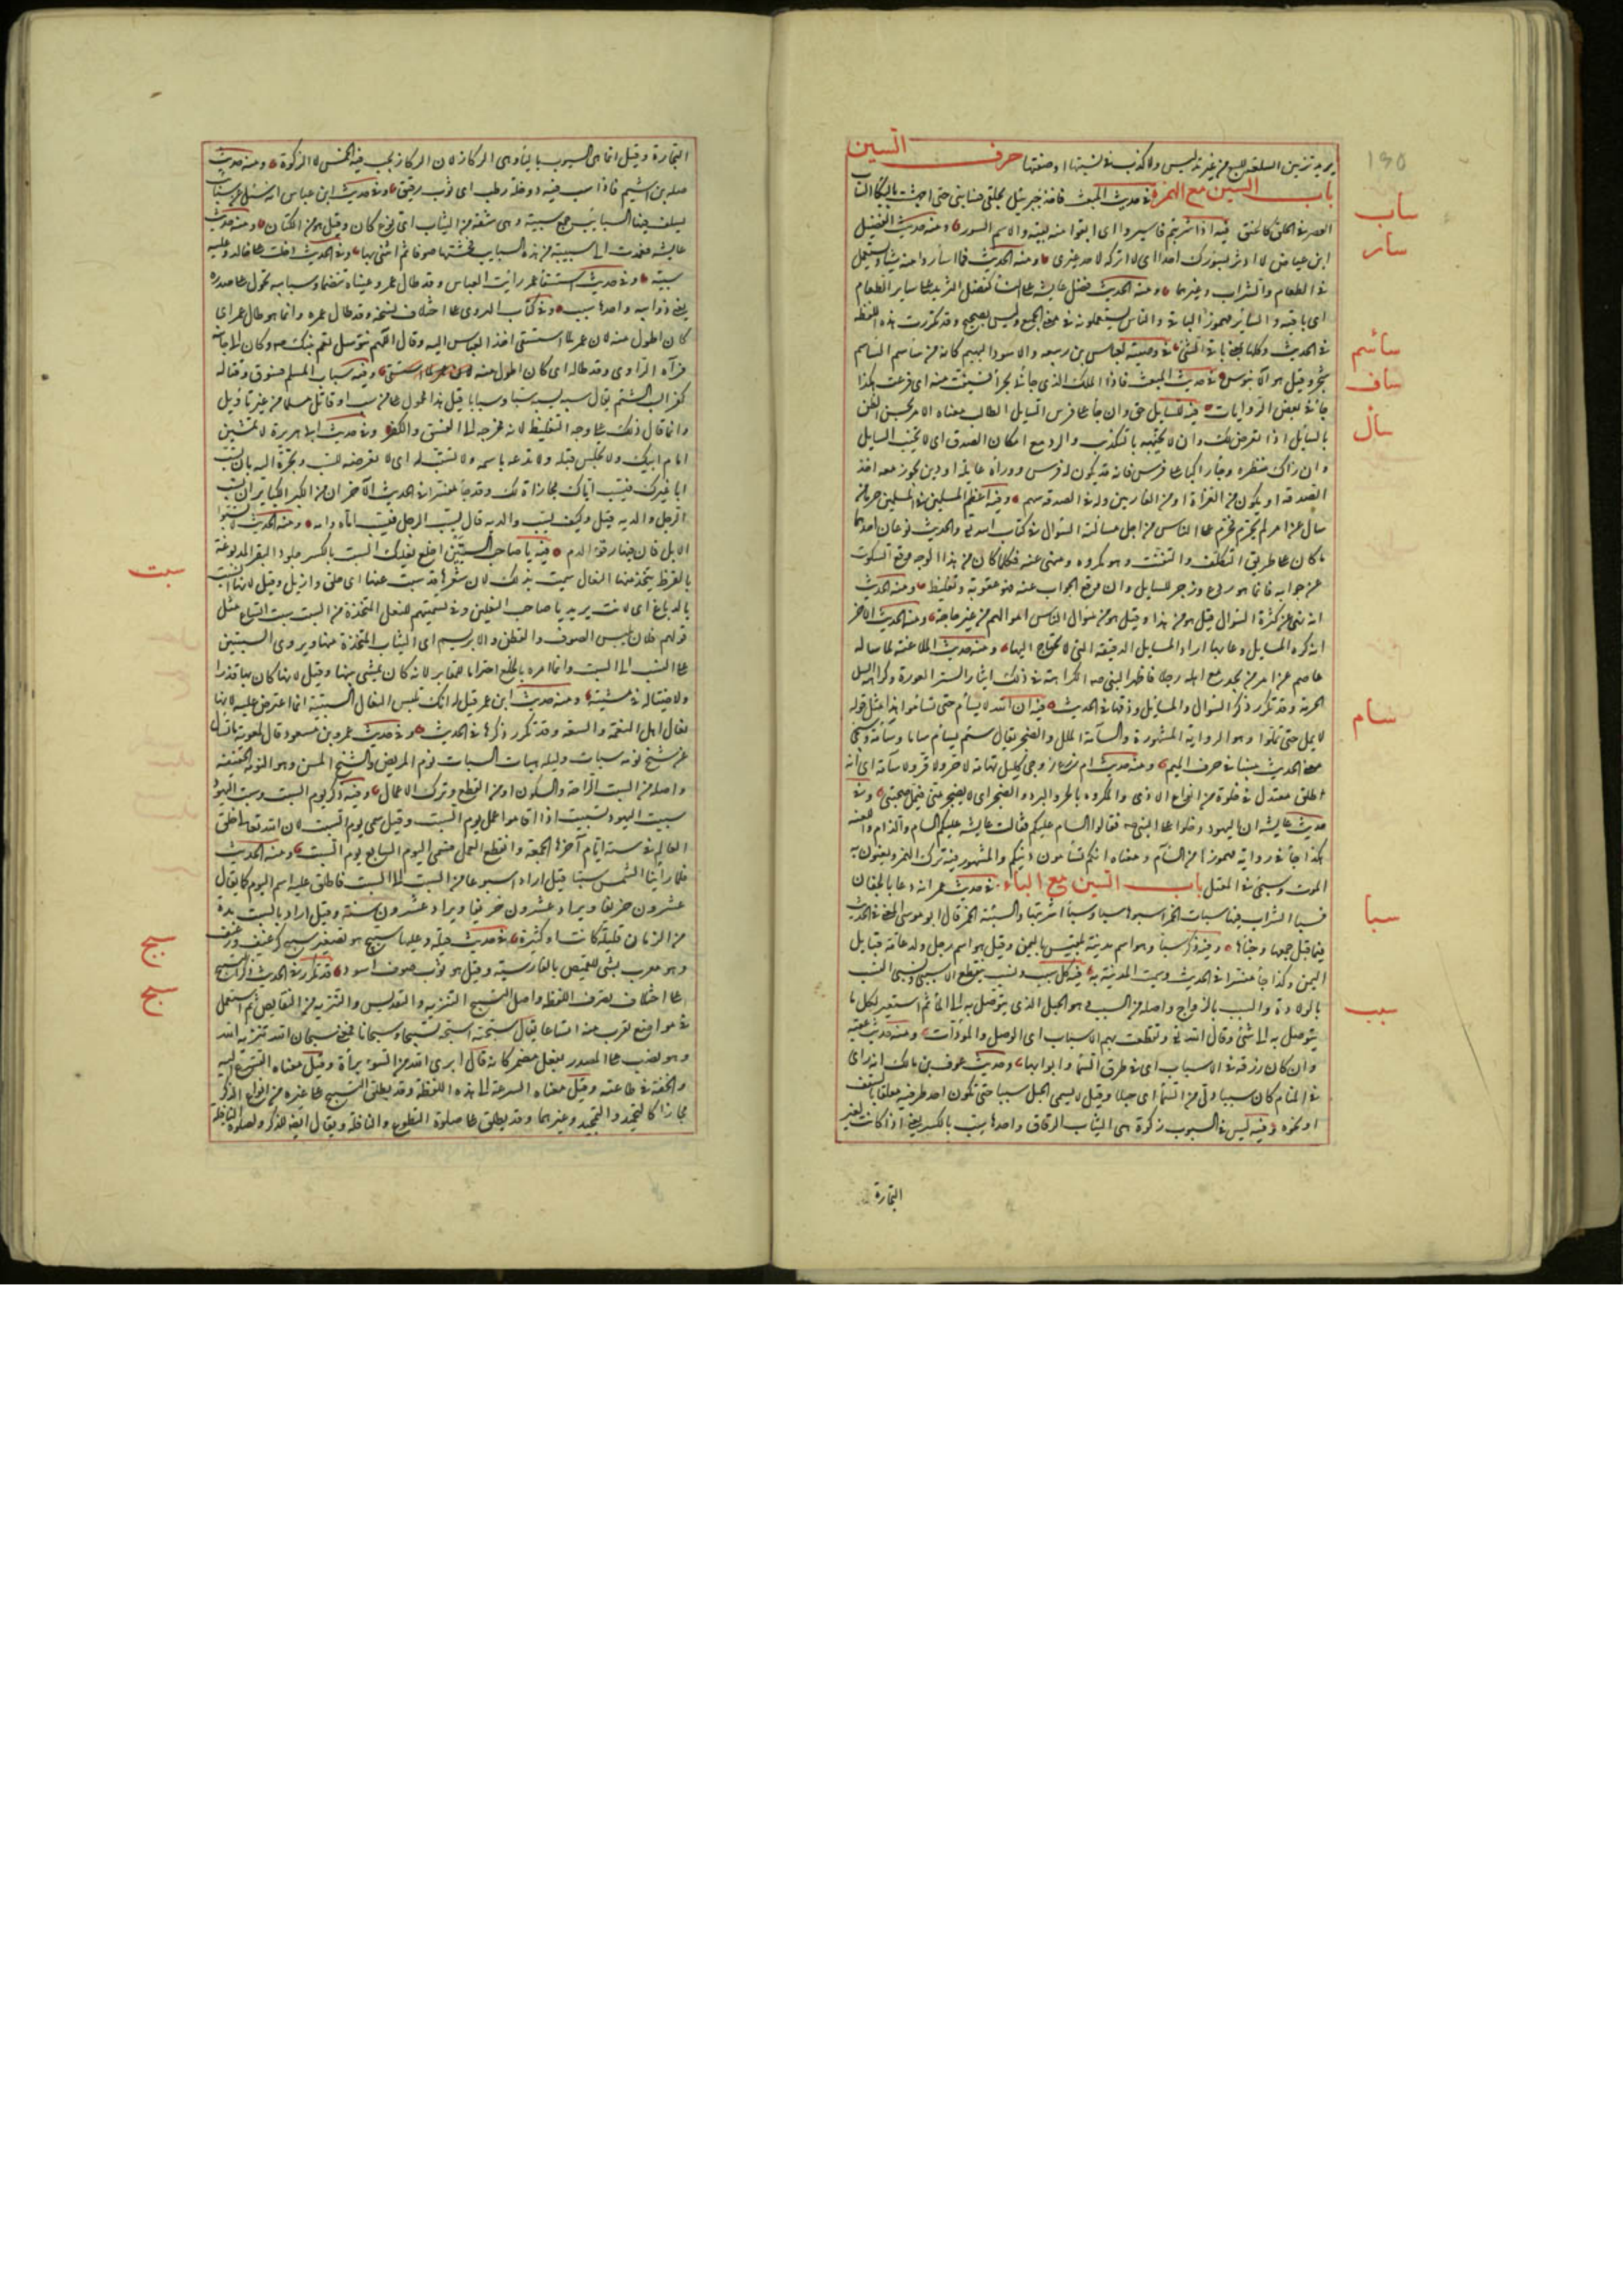 يريد تزيين السلعة للبيع من غير تدليس ولا كذب في نسبتها او صفتها حرف السين
باب السين مع الهمزة في حديث المبعث فاخذ جبريل بحلقي فسابني حتى اجهشت بالبكا الساب
العصر في الحلق كالخنق فيه اذا شربتم فاسيروا اى ابقوا منه بقية والاسم السور ومنه حديث الفضل
ابن عباس لا اوثر بسورك احدا اى لا اتركه لاحد غيرى ومنه الحديث فما اسأروا منه شيئا ويستعمل
في الطعام والشراب وغيرهما ومنه الحديث فضل عايشة على النسا كفضل الثريد على ساير الطعام
اى باقيه والساير مهموز الباقى والناس يستعملونه في معنى الجميع وليس بصحيح وقد تكررت هذه اللفظة
في الحديث وكلها بمعنى باقى الشئ في وصيته لعباس بن ربيعه والاسود البهيم كانه من ساسم الساسم
شجر وقيل هو الآبنوس في حديث المبعث فاذا الملك الذى جاءنى بحرا فسئفت منه اى فزعت هكذا
جاء في بعض الروايات فيه للسايل حق وان جاء على فرس السايل الطالب معناه الامر بحسن الظن
بالسايل اذا تعرض لك وان لا تجيبه بالتكذيب والرد مع امكان الصدق اى لا تخيب السايل
وان رابك منظره وجاء راكبا على فرس فانه قد يكون له فرس ووراءه عايلة او دين يجوز معه اخذ
الصدقة او يكون من الغزاة او من الغارمين وله في الصدقة سهم وفيه اعظم المسلمين في المسلمين جرما من
سال عن امر لم يحرم فحرم على الناس من اجل مسالته السوال في كتاب الله والحديث نوعان احدهما
ما كان على طريق التكلف والتعنت وهو مكروه ومنهى عنه فكلما كان من هذا الوجه ووقع السكوت
عن جوابه فانما هو ردع وزجر للسايل وان وقع الجواب عنه فهو عقوبة وتغليظ ومنه الحديث
انه نهى عن كثرة السوال قيل هو من هذا وقيل هو من سوال الناس اموالهم من غير حاجة ومنه الحديث الآخر
انه كره المسايل وعابها اراد المسايل الدقيقة التى لا يحتاج اليها ومنه حديث الملاعنة لما ساله
عاصم عن امر من يجد مع اهله رجلا فاظهر النبى صم الكراهة في ذلك ايثارا لستر العورة وكراهة لهتك
الحرمة وقد تكرر ذكر السوال والمسايل وذمها في الحديث فيه ان الله لا يسأم حتى تسأموا هذا مثل قوله
لا يمل حتى تملوا وهو الرواية المشهورة والسآمة الملل والضجر يقال سئم يسأم ساما وسآمة وسيجئ
معنى الحديث مبينا في حرف الميم ومنه حديث ام زرع زوجى كليل تهامة لا حر ولا قر ولا سآمة اى انه
طلق معتدل في خلوه من انواع الاذى والمكروه بالحر والبرد والضجر اى لا يضجر منى فيمل صحبتى وفي
حديث عايشة ان اليهود دخلوا على النبى صم فقالوا السام عليكم فقالت عايشة عليكم السام والذام واللعنة
هكذا جاء في رواية مهموزا من السأم ومعناه انكم تسأمون دينكم والمشهور فيه ترك الهمز ويعنون به
الموت وسيجئ في المعتل باب السين مع الباء في حديث عمر انه دعا بالجفان
فسبأ الشراب فيها سبات الخمر اسبوها سبا وسباء اشتريتها والسبيئة الخمر قال ابو موسى المعنى في الحديث
فيما قيل جمعها وخبأها وفيه ذكر سبأ وهو اسم مدينة بلقيس باليمن وقيل هو اسم رجل ولد عامة قبايل
اليمن وكذا جاء مفسرا في الحديث وسميت المدينة به فيه كل سبب ونسب ينقطع الا سببى ونسبى النسب
بالولادة والسبب بالزواج واصله من السبب وهو الحبل الذى يتوصل به الى الماء ثم استعير لكل ما
يتوصل به الى شئ وقال الله وتقطعت بهم الاسباب اى الوصل والمودات ومنه حديث عقبة
وان كان رزقه في الاسباب اى في طرق السما وابوابها وحديث عوف بن مالك انه راى
في المنام كان سببا دلى من السما اى حبلا وقيل لا يسمى الحبل سببا حتى يكون احد طرفيه معلقا بالسقف
او نحوه وفيه ليس في السبوب زكوة هى الثياب الرقاق واحدها سب بالكسر يعنى اذا كانت لغير
التجارة
١٩٥
ساب
سار
سأسم
ساف
سأل
سام
سبا
سبب
التجارة وقيل انما هى السيوب بالياء وهى الركاز لان الركاز يجب فيه الخمس لا الزكوة ومنه حديث
صلة بن اشيم فاذا سب فيه دوخلة رطب اى ثوب رقيق وفي حديث ابن عباس انه سئل عن سبايب
يسلف فيها السبايب جمع سبيبة وهى شقة من الثياب اى نوع كان وقيل هو من الكتان ومنه حديث
عايشة فعمدت الى سبيبة من هذه السبايب فحشتها صوفا ثم اتتنى بها وفي الحديث دخلت على خالد وعليه
سبيبة وفي حديث استسقاء عمر رايت العباس وقد طال عمر وعيناه تنضمان وسبايبه تجول على صدره
يعنى ذوايبه واحدها سبيب وفي كتاب الهروى على اختلاف نسخه وقد طال عمره وانما هو طال عمر اى
كان اطول منه لان عمر لما استسقى اخذ العباس اليه وقال اللهم نتوسل بعم نبيك صم وكان الى جانبه
فرآه الراوى وقد طاله اى كان اطول منه وفيه سباب المسلم فسوق وقتاله
كفر السب الشتم يقال سبه يسبه سبا وسبابا قيل هذا محمول على من سب او قاتل مسلما من غير تاويل
وانما قال ذلك على وجه التغليظ لا انه يخرجه الى الفسق والكفر وفي حديث ابى هريرة لا تمشين
امام ابيك ولا تجلس قبله ولا تدعه باسمه ولا تستسب له اى لا تعرضه للسب وتجره اليه بان تسب
ابا غيرك فيسب اباك مجازاة لك وقد جاء مفسرا في الحديث الآخر ان من اكبر الكباير ان يسب
الرجل والديه قيل وكيف يسب والديه قال يسب الرجل فيسب اباه وامه ومنه الحديث لا تسبوا
الابل فان فيها رقوء الدم فيه يا صاحب السبتين اخلع نعليك السبت بالكسر جلود البقر المدبوغة
بالقرظ يتخذ منها النعال سميت بذلك لان شعرها قد سبت عنها اى حلق وازيل وقيل لانها انسبتت
بالدباغ اى لانت يريد يا صاحب النعلين وفي تسميتهم للنعل المتخذة من السبت سبتا اتساع مثل
قولهم فلان يلبس الصوف والقطن والابريسم اى الثياب المتخذة منها ويروى السبتيين
على النسب الى السبت وانما امره بالخلع احتراما للمقابر لانه كان يمشى بينها وقيل لانها كان بها قذر
او لاختياله في مشيه ومنه حديث ابن عمر قيل له انك تلبس النعال السبتية انما اعترض عليه لانها
نعال اهل النعمة والسعة وقد تكرر ذكرها في الحديث وفي حديث عمرو بن مسعود قال لمعوية ما تسال
عن شيخ نومه سبات وليله هبات السبات نوم المريض والشيخ المسن وهو النومة الخفيفة
واصله من السبت الراحة والسكون او من القطع وترك الاعمال وفيه ذكر يوم السبت وسبت اليهود
سبتت اليهود تسبت اذا اقاموا عمل يوم السبت وقيل سمى يوم السبت لان الله تعالى خلق
العالم في ستة ايام آخرها الجمعة وانقطع العمل فسمى اليوم السابع يوم السبت ومنه الحديث
فما راينا الشمس سبتا قيل اراد اسبوعا من السبت الى السبت فاطلق عليه اسم اليوم كما يقال
عشرون خريفا ويراد عشرون سنة وقيل اراد بالسبت مدة
من الزمان قليلة كانت او كثيرة في حديث قيلة وعليها سبيج هو تصغير سبيج كرغيف ورغيف
وهو معرب شبى للقميص بالفارسية وقيل هو ثوب صوف اسود قد تكرر في الحديث ذكر التسبيح
على اختلاف تصرف اللفظة واصل التسبيح التنزيه والتقديس والتبرئة من النقايص ثم استعمل
في مواضع تقرب منه اتساعا يقال سبحته اسبحه تسبيحا وسبحانا فمعنى سبحان الله تنزيه الله
وهو نصب على المصدر بفعل مضمر كانه قال ابرى الله من السوء براءة وقيل معناه التسرع اليه
والخفة في طاعته وقيل معناه السرعة الى هذه اللفظة وقد يطلق التسبيح على غيره من انواع الذكر
مجازا كالتحميد والتمجيد وغيرهما وقد يطلق على صلوة التطوع والنافلة ويقال ايضا للذكر ولصلوة النافلة
سبت
سبج
سبح